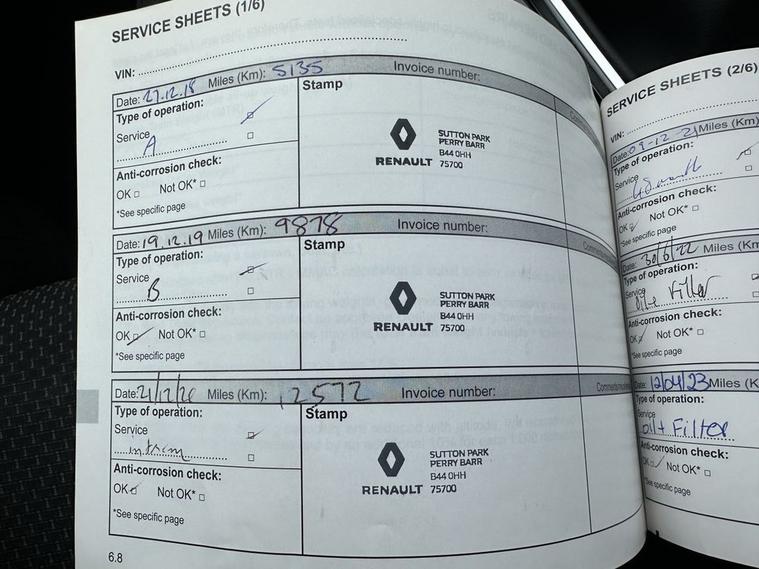 SERVICE SHEETS (1/6)
VIN:
Date: 27.12.18 Miles (Km): 5135 Invoice number:
Type of operation:
Service
A
Anti-corrosion check:
OK □ Not OK* □
*See specific page
Stamp
RENAULT
SUTTON PARK
PERRY BARR
B44 0HH
75700
Date: 19.12.19 Miles (Km): 9878 Invoice number:
Type of operation:
Service
B
Anti-corrosion check:
OK □ Not OK* □
*See specific page
Stamp
RENAULT
SUTTON PARK
PERRY BARR
B44 0HH
75700
Date: 21/12/20 Miles (Km): 12572 Invoice number:
Type of operation:
Service
interim
Anti-corrosion check:
OK □ Not OK* □
*See specific page
Stamp
RENAULT
SUTTON PARK
PERRY BARR
B44 0HH
75700
6.8
SERVICE SHEETS (2/6)
VIN:
Date: 09-12-21 Miles (Km)
Type of operation:
Service
Anti-corrosion check:
OK □ Not OK* □
*See specific page
Date: 30/6/22 Miles (Km
Type of operation:
Service
Filter
Anti-corrosion check:
OK □ Not OK* □
*See specific page
Date: 12/04/23 Miles (K
Type of operation:
Service
oil + Filter
Anti-corrosion check:
OK □ Not OK* □
*See specific page